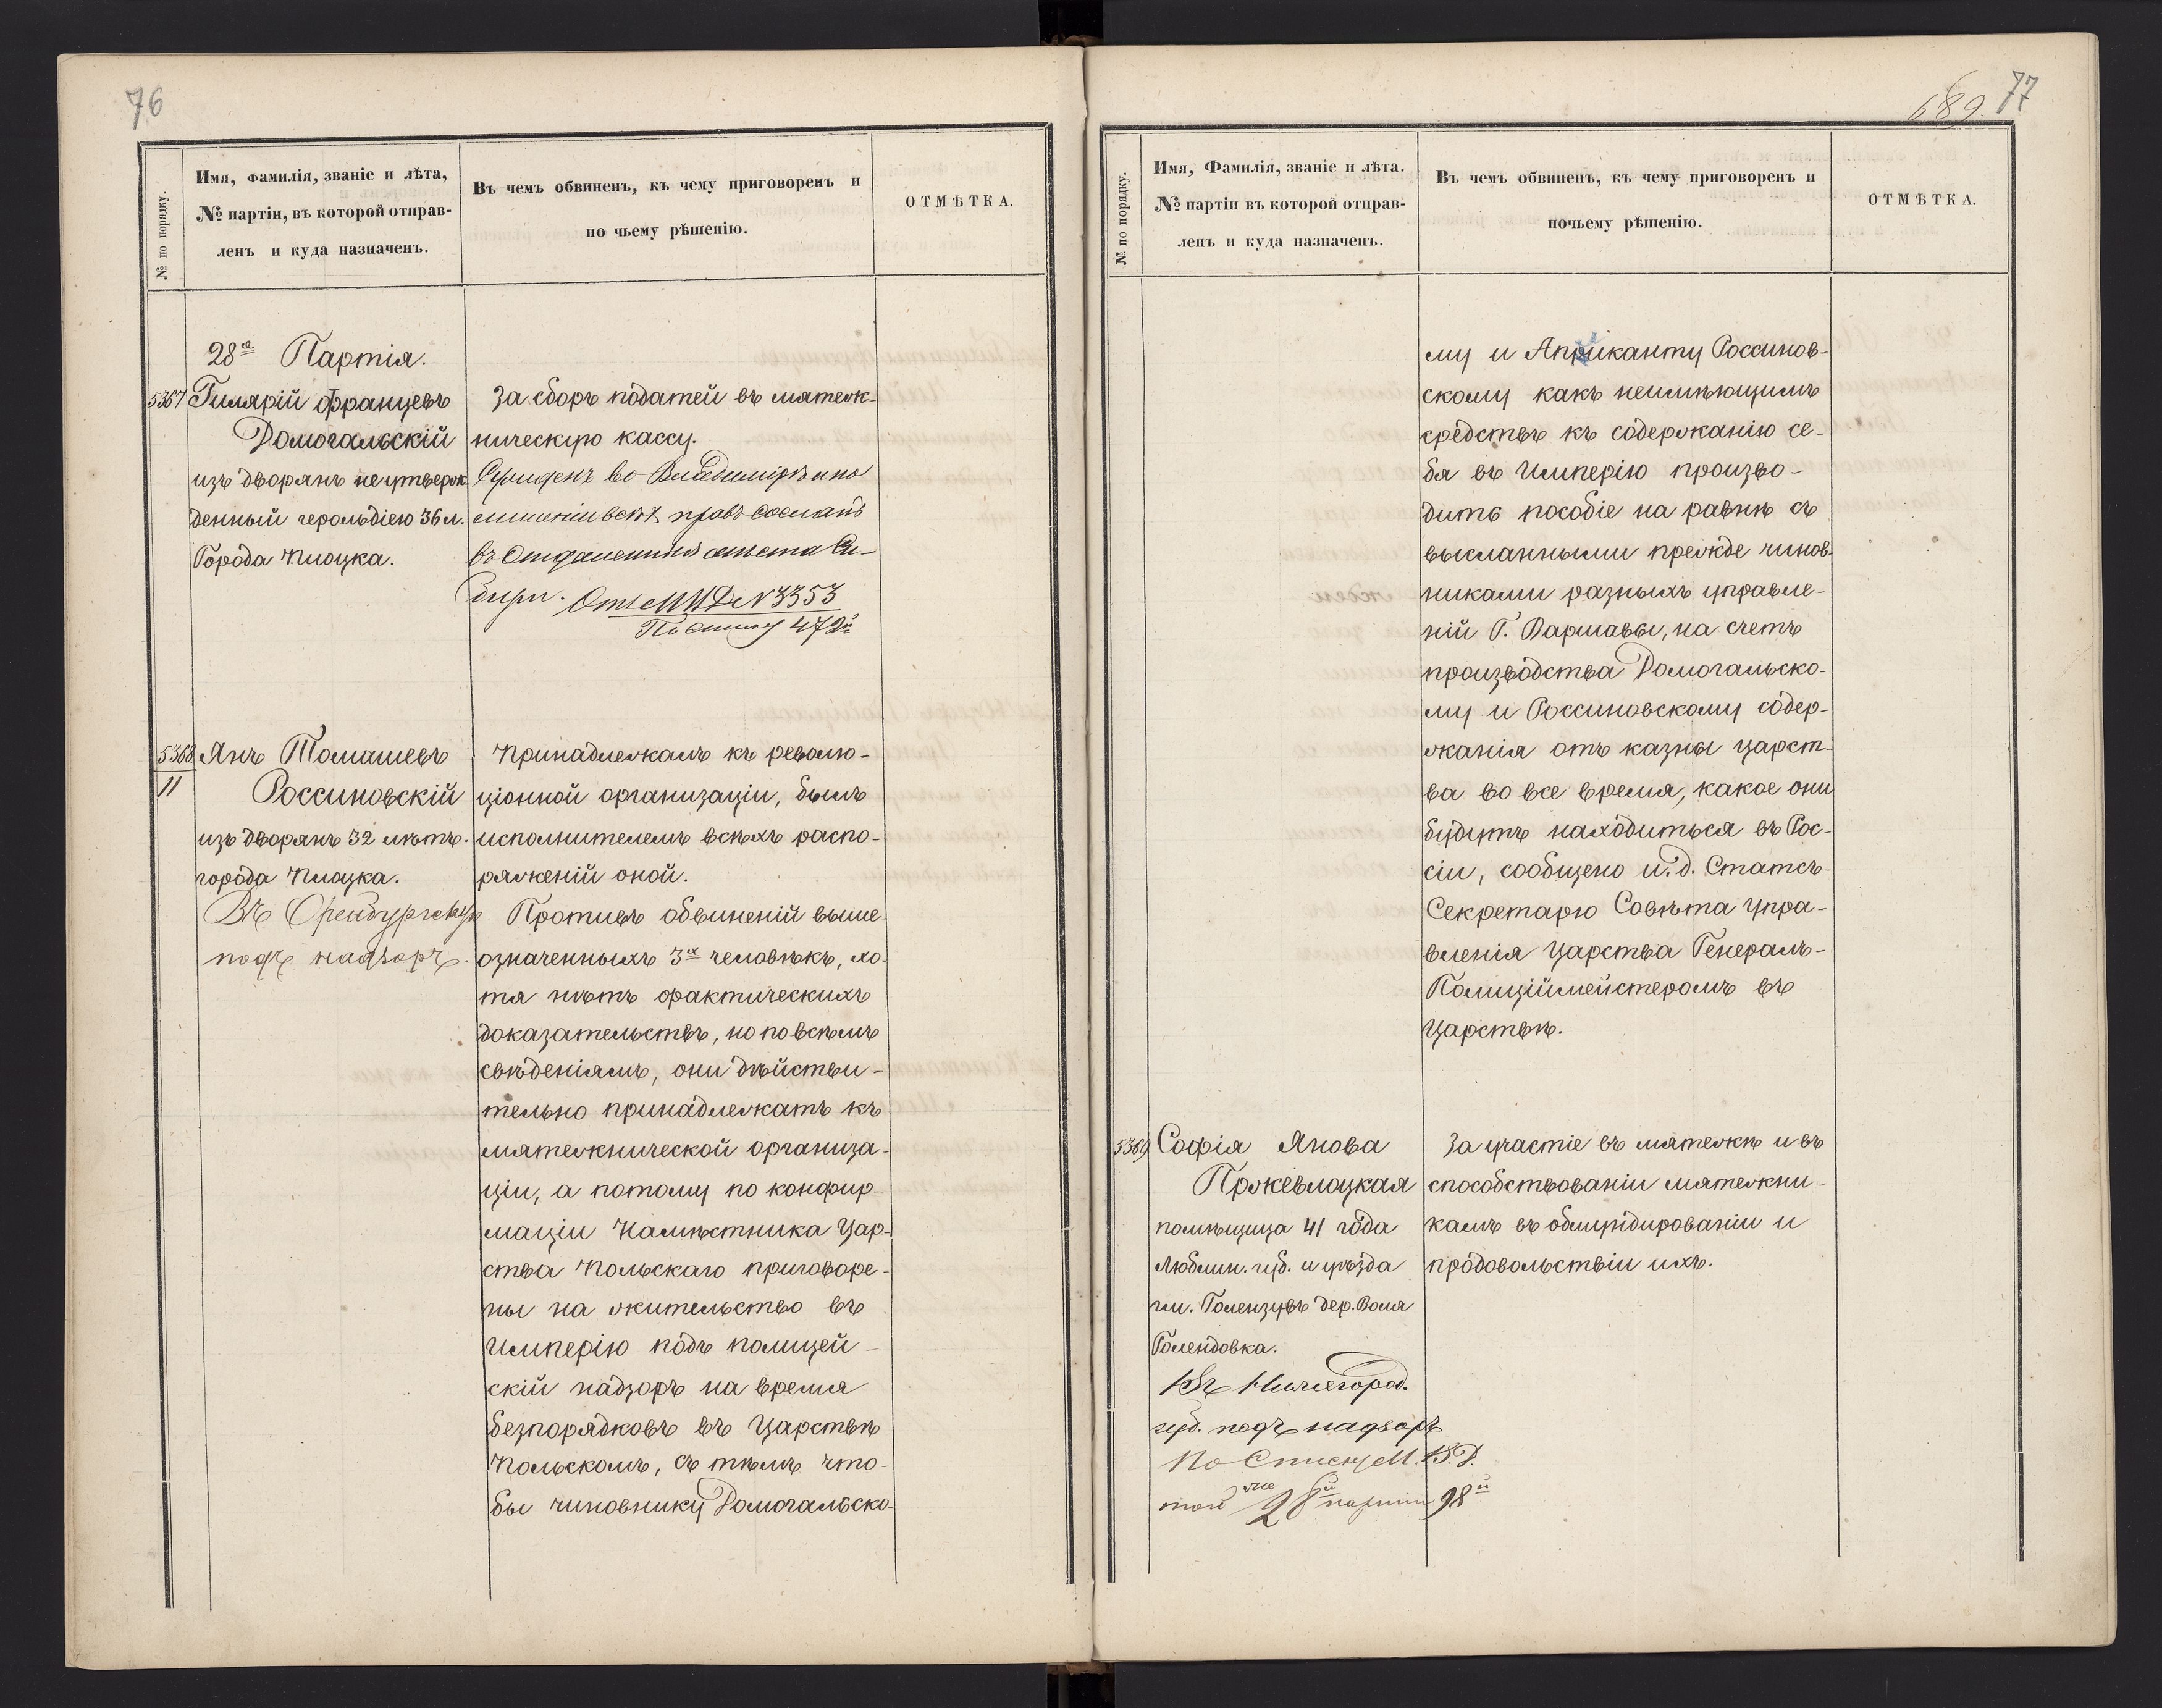 76
№ по порядку.
Имя, фамилія, званіе и лѣта,
№ партіи, въ которой отправ-
ленъ и куда назначенъ.
Въ чемъ обвиненъ, къ чему приговоренъ и
по чьему рѣшенію.
ОТМѢТКА.
28я Партія.
5367 Гилярій Францевъ
Домогальскій
изъ дворянъ неутверж-
денный герольдіею 36 л.
Города Плоцка.
За сборъ податей въ мятеж-
ническую кассу.
лишеніи всѣхъ правъ сосланъ
въ отдаленныя мѣста Си-
бири. От. МИД № 3353
По списку 472й
5368
11
Янъ Томашевъ
Россиновскій
изъ дворянъ 32 лѣтъ.
города Плоцка.
Въ Оренбургскую
подъ надзоръ.
Принадлежалъ къ револю-
ціонной организаціи, былъ
исполнителемъ всѣхъ распо-
ряженій оной.
Противъ обвиненій выше-
означенныхъ 3х человѣкъ, хо-
тя нѣтъ фактическихъ
доказательствъ, но по всѣмъ
свѣденіямъ, они дѣйстви-
тельно принадлежатъ къ
мятежнической организа-
ціи, а потому по конфир-
маціи Намѣстника Цар-
ства Польскаго приговоре-
ны на жительство въ
Имперію подъ полицей-
скій надзоръ на время
безпорядковъ въ Царствѣ
Польскомъ, съ тѣмъ что-
бы чиновнику Домогальско-
689. 77
№ по порядку.
Имя, Фамилія, званіе и лѣта.
№ партіи въ которой отправ-
ленъ и куда назначенъ.
Въ чемъ обвиненъ, къ чему приговоренъ и
почьему рѣшенію.
ОТМѢТКА.
му и Апликанту Россинов-
скому какъ неимѣющимъ
средствъ къ содержанію се-
бя въ Имперію произво-
дить пособіе на равнѣ съ
высланными прежде чинов-
никами разныхъ управле-
ній Г. Варшавы, на счетъ
производства Домогальско-
му и Россиновскому содер-
жанія отъ казны царст-
ва во все время, какое они
будутъ находиться въ Рос-
сіи, сообщено и. д. Статсъ-
Секретарю Совѣта Упра-
вленія Царства Генералъ-
Полиціймейстеромъ въ
Царствѣ.
5369 Софія Янова
Пржевлоцкая
помѣщица 41 года
Люблин. губ. и уѣзда
гм. Голензувъ дер. Воля
Голендовка.
Въ Нижегород.
губ. подъ надзоръ
По Списку М. В. Д.
той же 28й партіи 98й
За участіе въ мятежѣ и въ
способствованіи мятежни-
камъ въ обмундированіи и
продовольствіи ихъ.